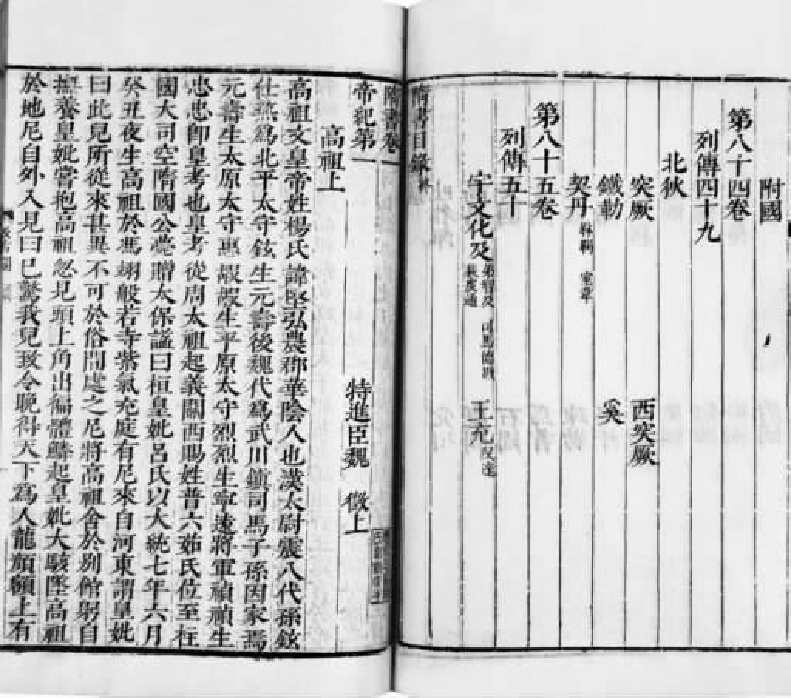 附國
第八十四卷
列傳四十九
北狄
突厥 西突厥
鐵勒 奚
契丹 靺鞨 室韋
第八十五卷
列傳五十
宇文化及 弟智及 司馬德戡 裴虔通 王充 段達
隋書目錄終
隋書卷一
帝紀第一 特進臣魏 徵上
高祖上
高祖文皇帝姓楊氏諱堅弘農郡華陰人也漢太尉震八代孫鉉
仕燕爲北平太守鉉生元壽後魏代爲武川鎮司馬子孫因家焉
元壽生太原太守惠嘏嘏生平原太守烈烈生寧遠將軍禎禎生
忠忠卽皇考也皇考從周太祖起義關西賜姓普六茹氏位至柱
國大司空隋國公薨贈太保謚曰桓皇妣呂氏以大統七年六月
癸丑夜生高祖於馮翊般若寺紫氣充庭有尼來自河東謂皇妣
曰此兒所從來甚異不可於俗間處之尼將高祖舍於別館躬自
撫養皇妣嘗抱高祖忽見頭上角出徧體鱗起皇妣大駭墜高祖
於地尼自外入見曰已驚我兒致令晚得天下爲人龍顏額上有